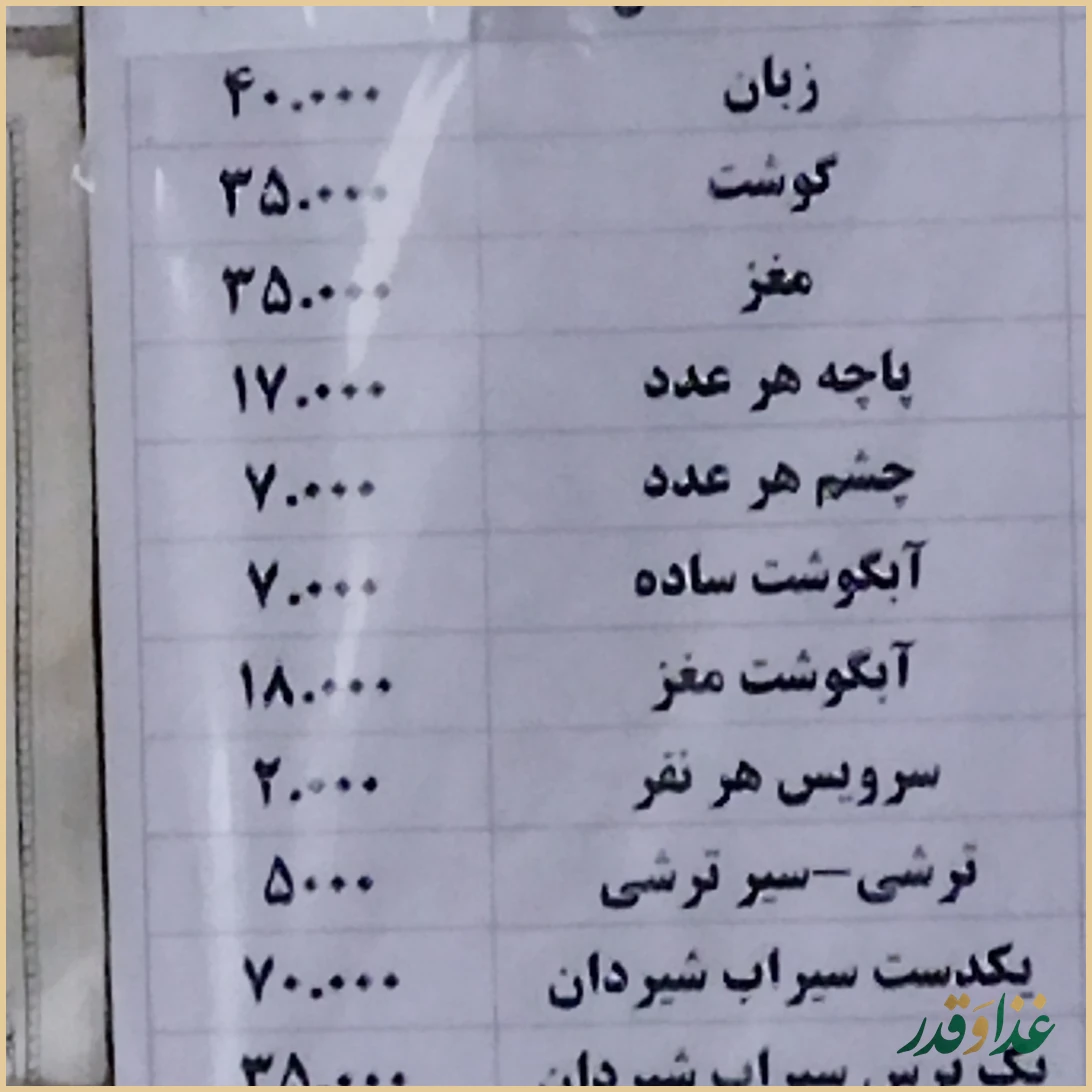 زبان ۴۰.۰۰۰
گوشت ۳۵.۰۰۰
مغز ۳۵.۰۰۰
پاچه هر عدد ۱۷.۰۰۰
چشم هر عدد ۷.۰۰۰
آبگوشت ساده ۷.۰۰۰
آبگوشت مغز ۱۸.۰۰۰
سرویس هر نفر ۲.۰۰۰
ترشی–سیر ترشی ۵۰۰۰
یکدست سیراب شیردان ۷۰.۰۰۰
یک پرس سیراب شیردان ۳۵.۰۰۰
غذا و قدر